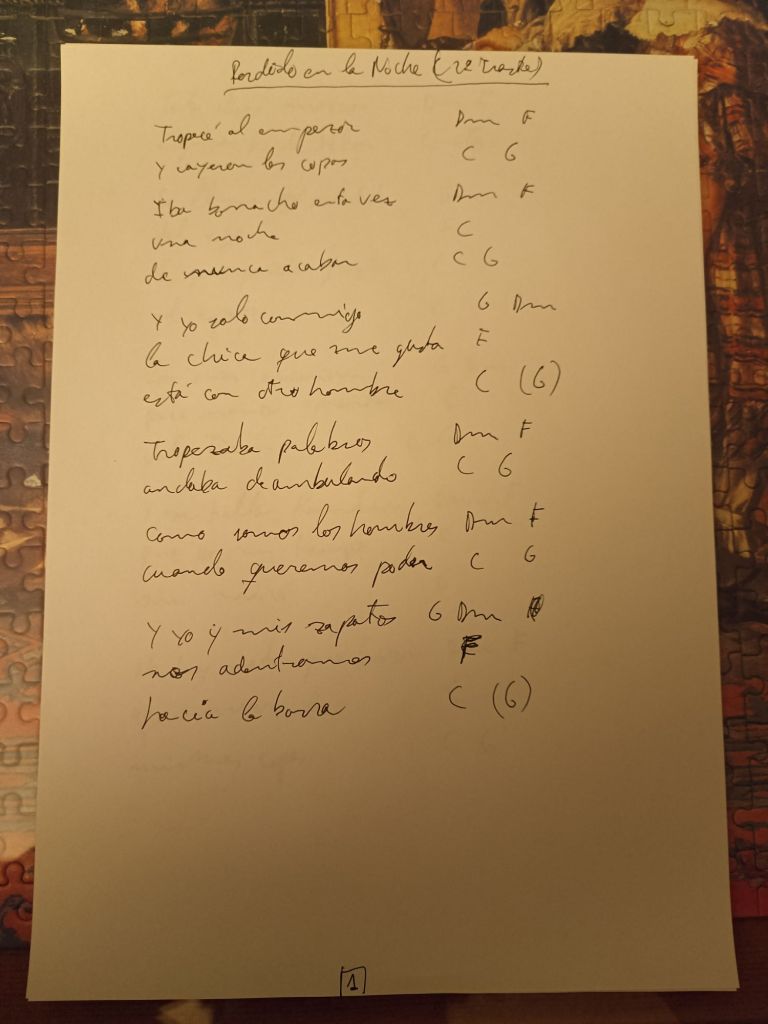 Perdido en la Noche (2º Traste)
Tropecé al empezar Dm F
Y cayeron las copas C G
Iba borracho esta vez Dm F
una noche C
de nunca acabar C G
Y yo solo conmigo G Dm
la chica que me gusta F
está con otro hombre C (G)
Tropezaba palabras Dm F
andaba deambulando C G
como somos los hombres Dm F
cuando queremos poder C G
Y yo y mis zapatos G Dm
nos adentramos F
hacia la barra C (G)
1